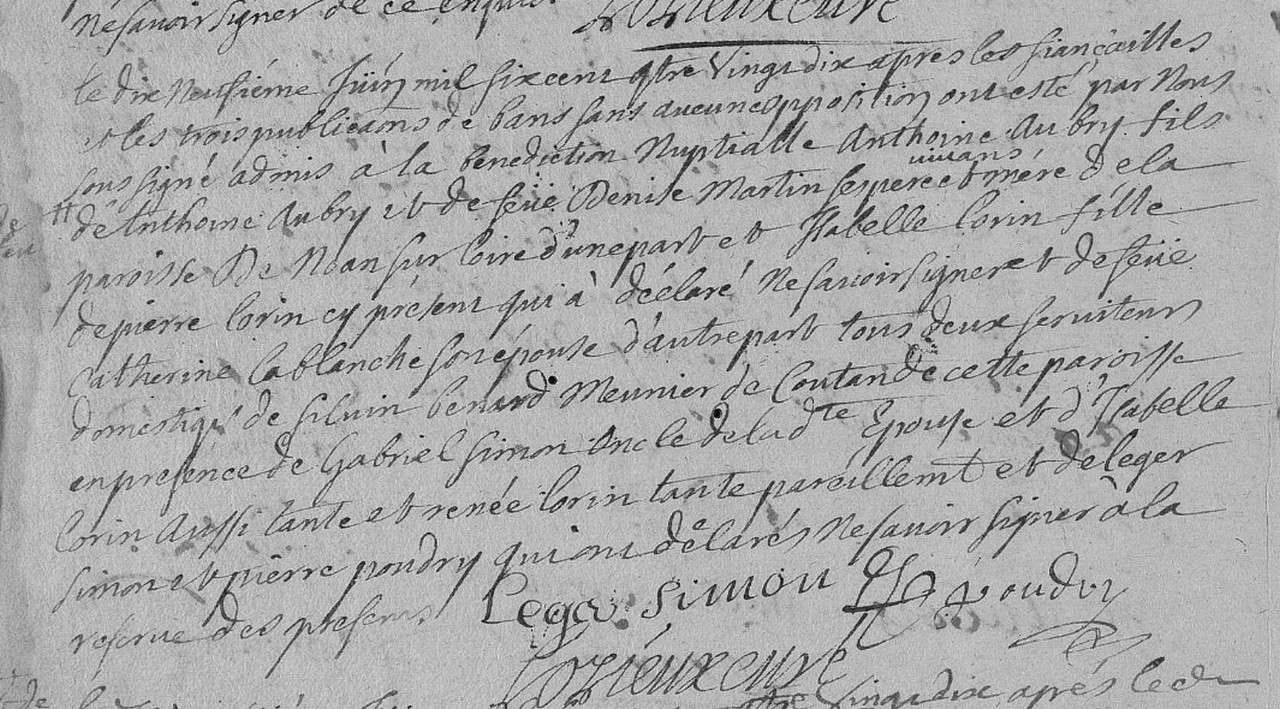 Ne savoir signer de ce enquis.
Lorieux curé
Le dix Neufiéme Juin mil six cent qtre Vingt dix apres les fiançailles
et les trois publicaons de bans sans aucune opposition ont esté par Nous
sous signé admis à la benediction Nuptialle Anthoine Aubry fils
vivans
d'Anthoine Aubry et de feüe Denise Martin ses pere et mére de la
paroisse De Noan sur Loire d'une part et Isabelle Lorin fille
de pierre Lorin cy présent qui à déclaré Ne savoir signer et de feüe
Catherine Lablanche son épouse d'autre part tous deux serviteurs
domestiqs de Silvin benard Meunier de Coutan de cette paroisse
en presence de Gabriel Simon oncle de lad te Epouse et d'Isabelle
Lorin Aussi tante et renée Lorin tante pareillemt et de leger
Simon et pierre poudry qui ont déclarés Ne savoir signer à la
reserve des presens.
Leger Simon P poudry
Lorieux curé
qtre Vingt dix aprés le